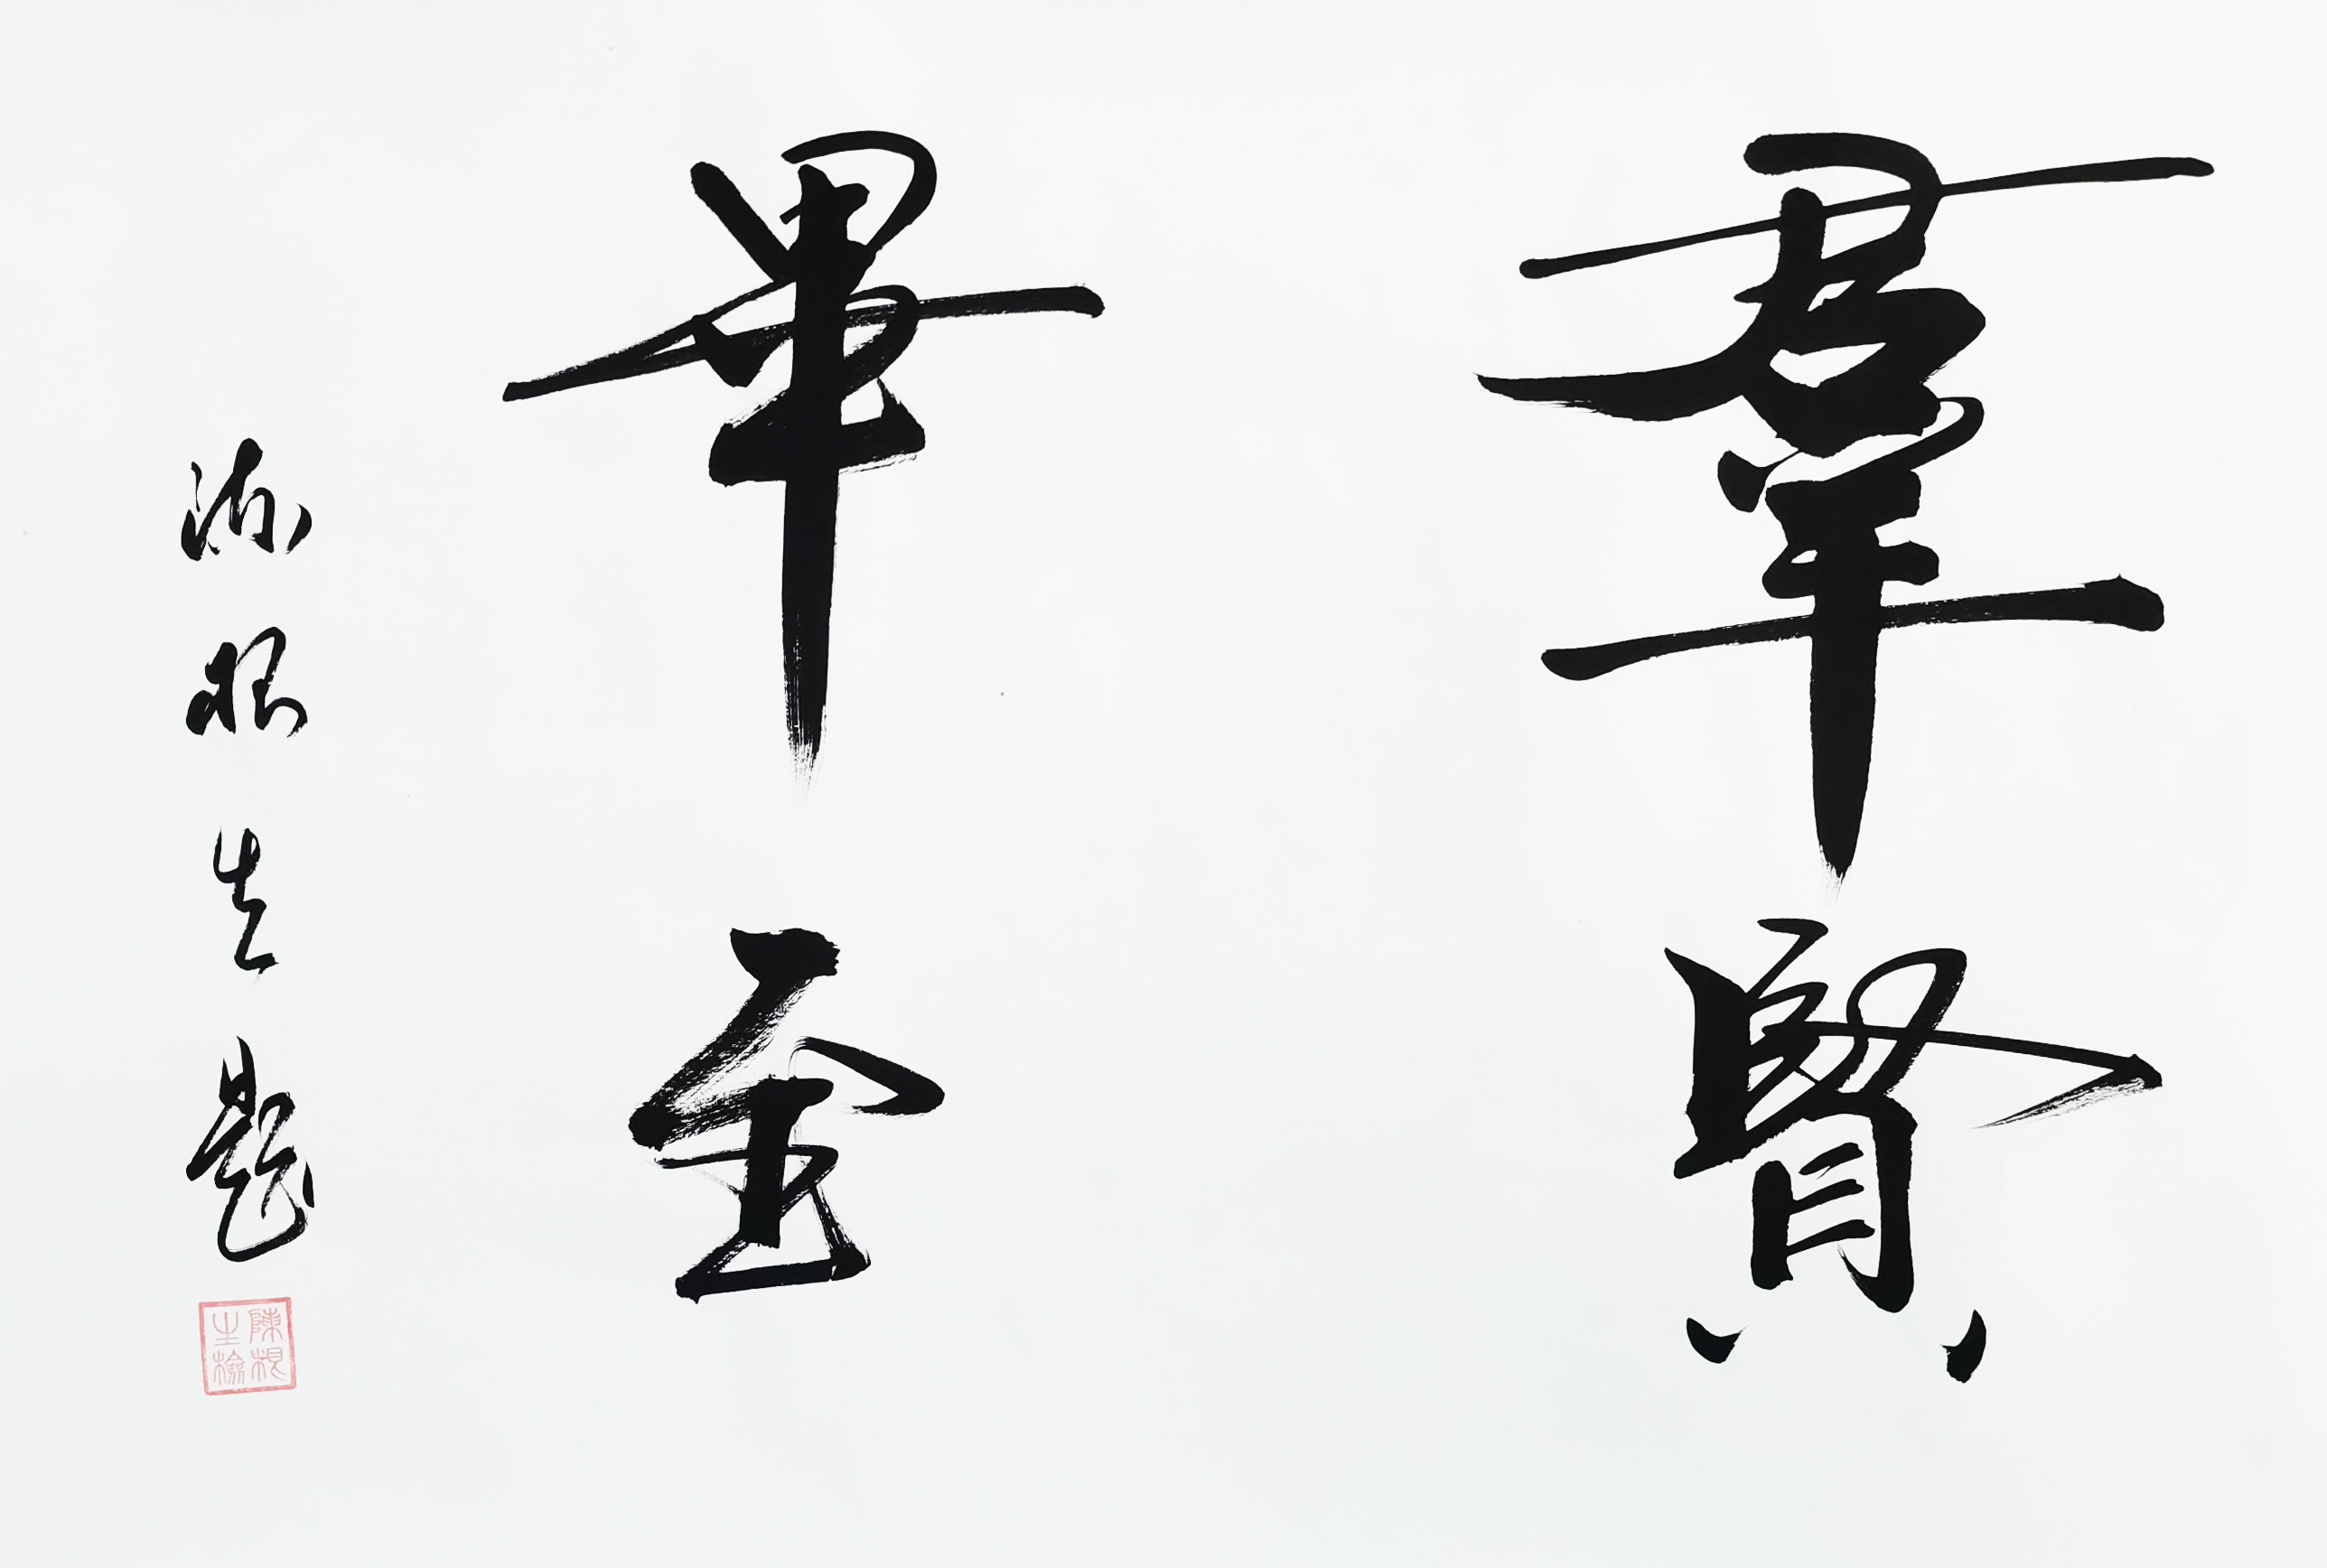 羣賢
畢至
陳根生題
陳根
生